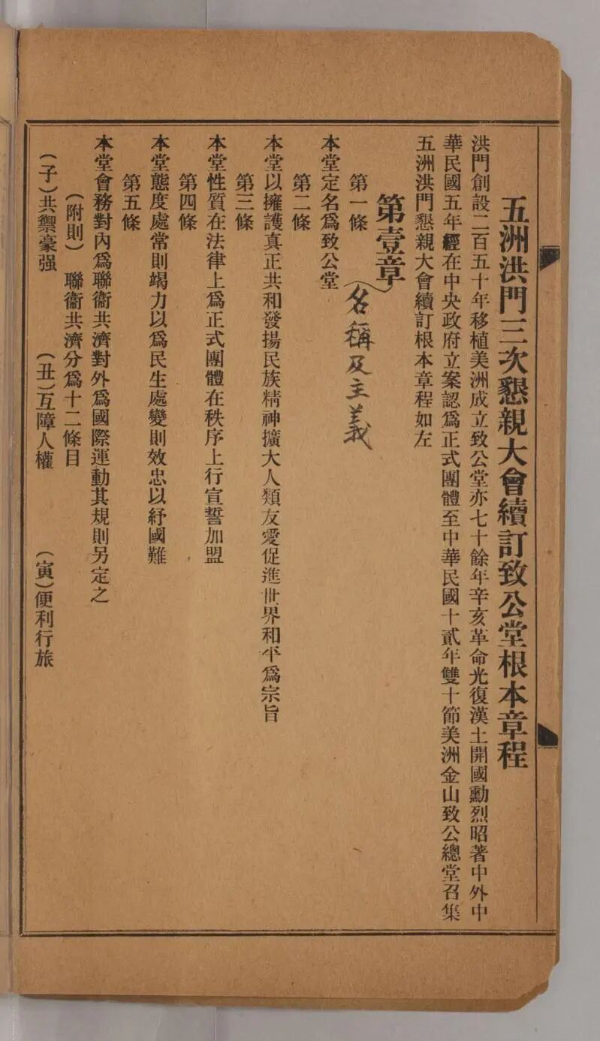 五洲洪門三次懇親大會續訂致公堂根本章程
洪門創設二百五十年移植美洲成立致公堂亦七十餘年辛亥革命光復漢土開國勳烈昭著中外中
華民國五年經在中央政府立案認爲正式團體至中華民國十貳年雙十節美洲金山致公總堂召集
五洲洪門懇親大會續訂根本章程如左
第壹章(名稱及主義)
第一條
本堂定名爲致公堂
第二條
本堂以擁護真正共和發揚民族精神擴大人類友愛促進世界和平爲宗旨
第三條
本堂性質在法律上爲正式團體在秩序上行宣誓加盟
第四條
本堂態度處常則竭力以爲民生處變則效忠以紓國難
第五條
本堂會務對內爲聯衞共濟對外爲國際運動其規則另定之
(附則) 聯衞共濟分爲十二條目
(子)共禦豪强 (丑)互障人權 (寅)便利行旅